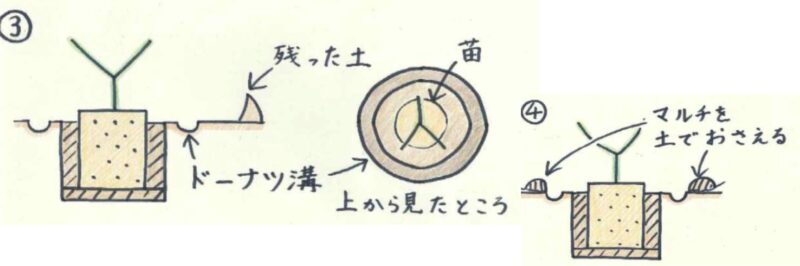 ③
残った土
苗
ドーナツ溝
上から見たところ
④
マルチを
土でおさえる